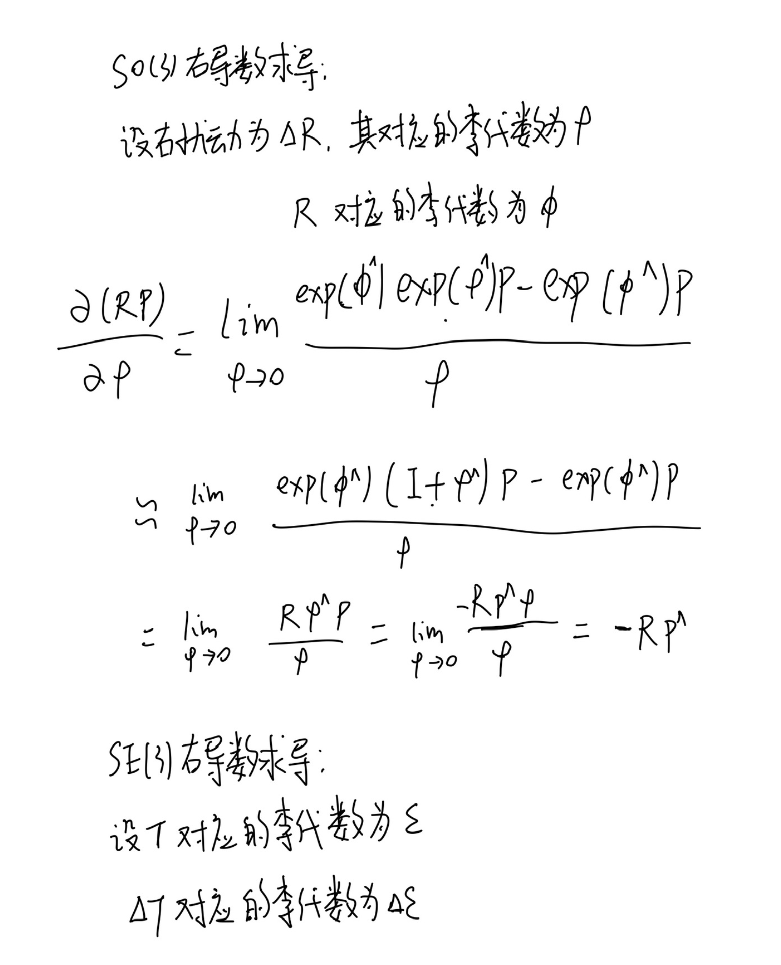 SO(3)右导数求导:
设右扰动为ΔR, 其对应的李代数为φ
R 对应的李代数为 ϕ
∂(RP)/∂φ = lim φ→0 (exp(ϕ^) exp(φ^)P - exp(ϕ^)P)/φ
≈ lim φ→0 (exp(ϕ^)(I+φ^)P - exp(ϕ^)P)/φ
= lim φ→0 Rφ^P/φ = lim φ→0 -RP^φ/φ = -RP^
SE(3)右导数求导:
设T对应的李代数为 ξ
ΔT对应的李代数为Δξ